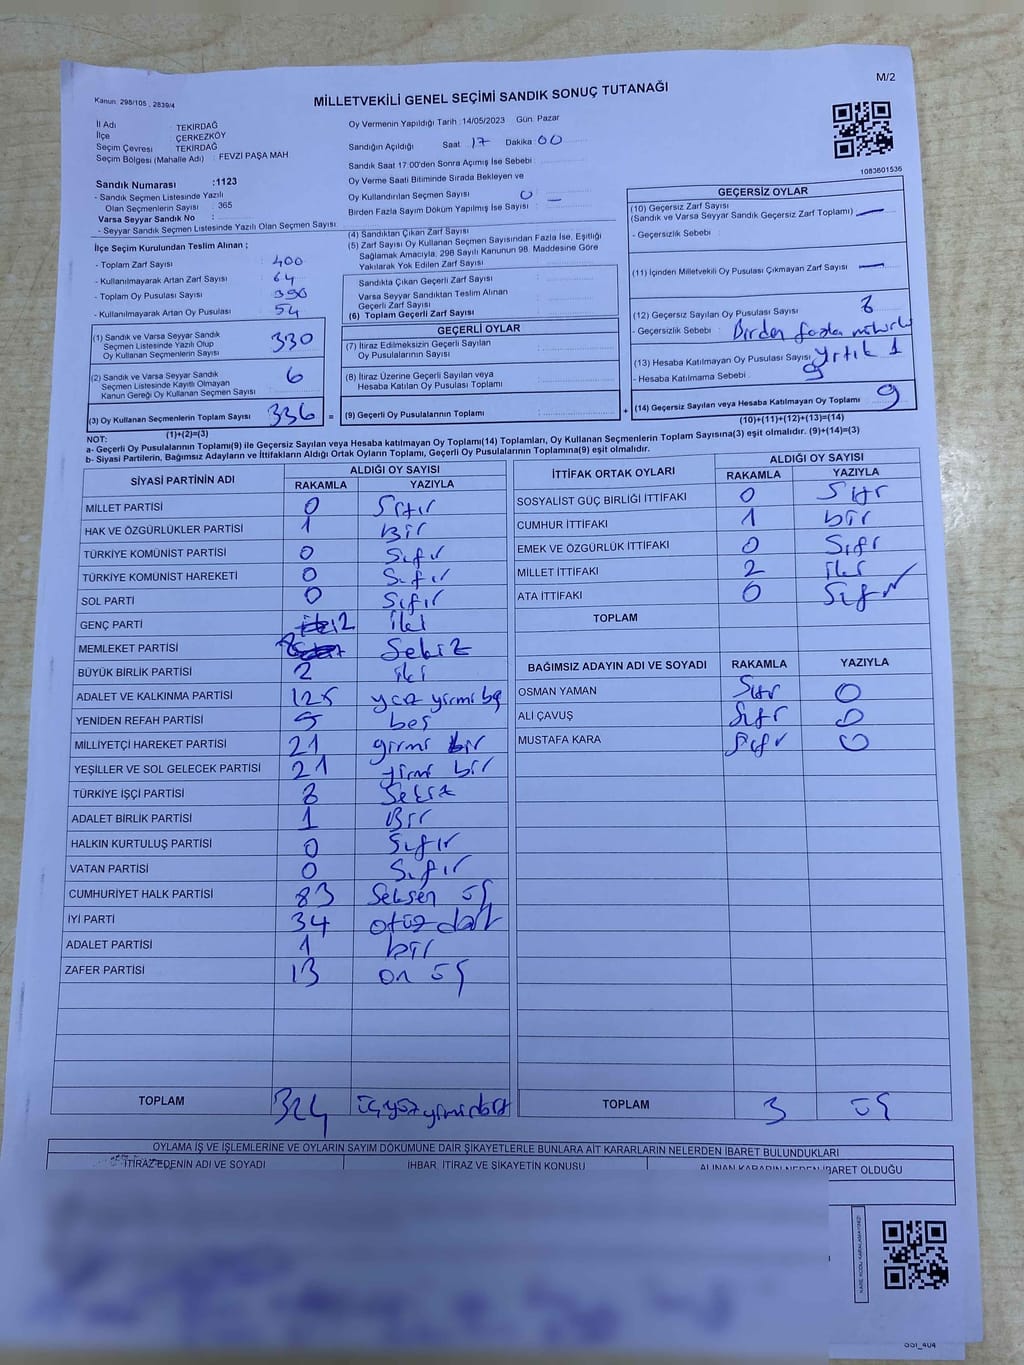 M/2
Kanun: 298/105 , 2839/4
MİLLETVEKİLİ GENEL SEÇİMİ SANDIK SONUÇ TUTANAĞI
İl Adı : TEKİRDAĞ
İlçe : ÇERKEZKÖY
Seçim Çevresi : TEKİRDAĞ
Seçim Bölgesi (Mahalle Adı) : FEVZİ PAŞA MAH
Sandık Numarası :1123
- Sandık Seçmen Listesinde Yazılı
Olan Seçmenlerin Sayısı : 365
Varsa Seyyar Sandık No :
- Seyyar Sandık Seçmen Listesinde Yazılı Olan Seçmen Sayısı
Oy Vermenin Yapıldığı Tarih :14/05/2023 Gün: Pazar
Sandığın Açıldığı Saat 17 Dakika 00
Sandık Saat 17:00'den Sonra Açımış İse Sebebi
Oy Verme Saati Bitiminde Sırada Bekleyen ve
Oy Kullandırılan Seçmen Sayısı 0
Birden Fazla Sayım Döküm Yapılmış İse Sayısı : —
1083601536
İlçe Seçim Kurulundan Teslim Alınan ;
- Toplam Zarf Sayısı : 400
- Kullanılmayarak Artan Zarf Sayısı : 64
- Toplam Oy Pusulası Sayısı : 390
- Kullanılmayarak Artan Oy Pusulası : 54
(1) Sandık ve Varsa Seyyar Sandık
Seçmen Listesinde Yazılı Olup
Oy Kullanan Seçmenlerin Sayısı : 330
(2) Sandık ve Varsa Seyyar Sandık
Seçmen Listesinde Kayıtlı Olmayan
Kanun Gereği Oy Kullanan Seçmen Sayısı : 6
(3) Oy Kullanan Seçmenlerin Toplam Sayısı : 336
(1)+(2)=(3)
(4) Sandıktan Çıkan Zarf Sayısı
(5) Zarf Sayısı Oy Kullanan Seçmen Sayısından Fazla İse, Eşitliği
Sağlamak Amacıyla, 298 Sayılı Kanunun 98. Maddesine Göre
Yakılarak Yok Edilen Zarf Sayısı
Sandıkta Çıkan Geçerli Zarf Sayısı :
Varsa Seyyar Sandıktan Teslim Alınan
Geçerli Zarf Sayısı
(6) Toplam Geçerli Zarf Sayısı :
GEÇERLİ OYLAR
(7) İtiraz Edilmeksizin Geçerli Sayılan
Oy Pusulalarının Sayısı :
(8) İtiraz Üzerine Geçerli Sayılan veya
Hesaba Katılan Oy Pusulası Toplamı :
= (9) Geçerli Oy Pusulalarının Toplamı : +
GEÇERSİZ OYLAR
(10) Geçersiz Zarf Sayısı
(Sandık ve Varsa Seyyar Sandık Geçersiz Zarf Toplamı) —
- Geçersizlik Sebebi :
(11) İçinden Milletvekili Oy Pusulası Çıkmayan Zarf Sayısı —
(12) Geçersiz Sayılan Oy Pusulası Sayısı : 8
- Geçersizlik Sebebi : Birden fazla
(13) Hesaba Katılmayan Oy Pusulası Sayısı yırtık 1
- Hesaba Katılmama Sebebi : 9
(14) Geçersiz Sayılan veya Hesaba Katılmayan Oy Toplamı : 9
(10)+(11)+(12)+(13)=(14)
NOT:
a- Geçerli Oy Pusulalarının Toplamı(9) ile Geçersiz Sayılan veya Hesaba katılmayan Oy Toplamı(14) Toplamları, Oy Kullanan Seçmenlerin Toplam Sayısına(3) eşit olmalıdır. (9)+(14)=(3)
b- Siyasi Partilerin, Bağımsız Adayların ve İttifakların Aldığı Ortak Oyların Toplamı, Geçerli Oy Pusulalarının Toplamına(9) eşit olmalıdır.
SİYASİ PARTİNİN ADI ALDIĞI OY SAYISI
RAKAMLA YAZIYLA
MİLLET PARTİSİ 0 Sıfır
HAK VE ÖZGÜRLÜKLER PARTİSİ 1 Bir
TÜRKİYE KOMÜNİST PARTİSİ 0 Sıfır
TÜRKİYE KOMÜNİST HAREKETİ 0 Sıfır
SOL PARTİ 0 Sıfır
GENÇ PARTİ 2 iki
MEMLEKET PARTİSİ 8 Sekiz
BÜYÜK BİRLİK PARTİSİ 2 iki
ADALET VE KALKINMA PARTİSİ 125 yüz yirmi beş
YENİDEN REFAH PARTİSİ 5 beş
MİLLİYETÇİ HAREKET PARTİSİ 21 yirmi bir
YEŞİLLER VE SOL GELECEK PARTİSİ 21 yirmi bir
TÜRKİYE İŞÇİ PARTİSİ 8 Sekiz
ADALET BİRLİK PARTİSİ 1 Bir
HALKIN KURTULUŞ PARTİSİ 0 Sıfır
VATAN PARTİSİ 0 Sıfır
CUMHURİYET HALK PARTİSİ 83 Seksen üç
İYİ PARTİ 34 otuz dört
ADALET PARTİSİ 1 bir
ZAFER PARTİSİ 13 on üç
TOPLAM 324 üçyüz yirmi dört
İTTİFAK ORTAK OYLARI ALDIĞI OY SAYISI
RAKAMLA YAZIYLA
SOSYALİST GÜÇ BİRLİĞİ İTTİFAKI 0 Sıfır
CUMHUR İTTİFAKI 1 bir
EMEK VE ÖZGÜRLÜK İTTİFAKI 0 Sıfır
MİLLET İTTİFAKI 2 iki
ATA İTTİFAKI 0 Sıfır
TOPLAM
BAĞIMSIZ ADAYIN ADI VE SOYADI RAKAMLA YAZIYLA
OSMAN YAMAN Sıfır 0
ALİ ÇAVUŞ Sıfır 0
MUSTAFA KARA Sıfır 0
TOPLAM 3 üç
OYLAMA İŞ VE İŞLEMLERİNE VE OYLARIN SAYIM DÖKÜMÜNE DAİR ŞİKAYETLERLE BUNLARA AİT KARARLARIN NELERDEN İBARET BULUNDUKLARI
İTİRAZ EDENİN ADI VE SOYADI İHBAR, İTİRAZ VE ŞİKAYETİN KONUSU ALINAN KARARIN NEDEN İBARET OLDUĞU